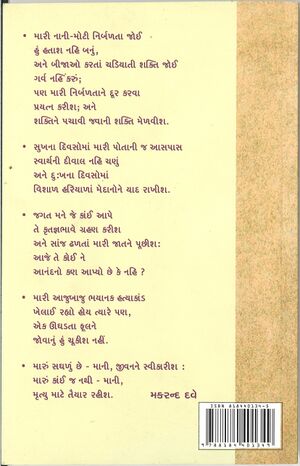 • મારી નાની-મોટી નિર્બળતા જોઈ
હું હતાશ નહિ બનું,
અને બીજાઓ કરતાં ચડિયાતી શક્તિ જોઈ
ગર્વ નહિં કરું;
પણ મારી નિર્બળતાને દૂર કરવા
પ્રયત્ન કરીશ; અને
શક્તિને પચાવી જવાની શક્તિ મેળવીશ.
• સુખના દિવસોમાં મારી પોતાની જ આસપાસ
સ્વાર્થની દીવાલ નહિ ચણું
અને દુ:ખના દિવસોમાં
વિશાળ હરિયાળાં મેદાનોને યાદ રાખીશ.
• જગત મને જે કાંઈ આપે
તે કૃતજ્ઞભાવે ગ્રહણ કરીશ
અને સાંજ ઢળતાં મારી જાતને પૂછીશ:
આજે તેં કોઈ ને
આનંદનો કણ આપ્યો છે કે નહિ ?
• મારી આજુબાજુ ભયાનક હત્યાકાંડ
ખેલાઈ રહ્યો હોય ત્યારે પણ,
એક ઊઘડતા ફૂલને
જોવાનું હું ચૂકીશ નહીં.
• મારું સઘળું છે - માની, જીવનને સ્વીકારીશ :
મારું કાંઈ જ નથી - માની,
મૃત્યુ માટે તૈયાર રહીશ.
મકરન્દ દવે
ISBN 818440134-3
9 788184 401349